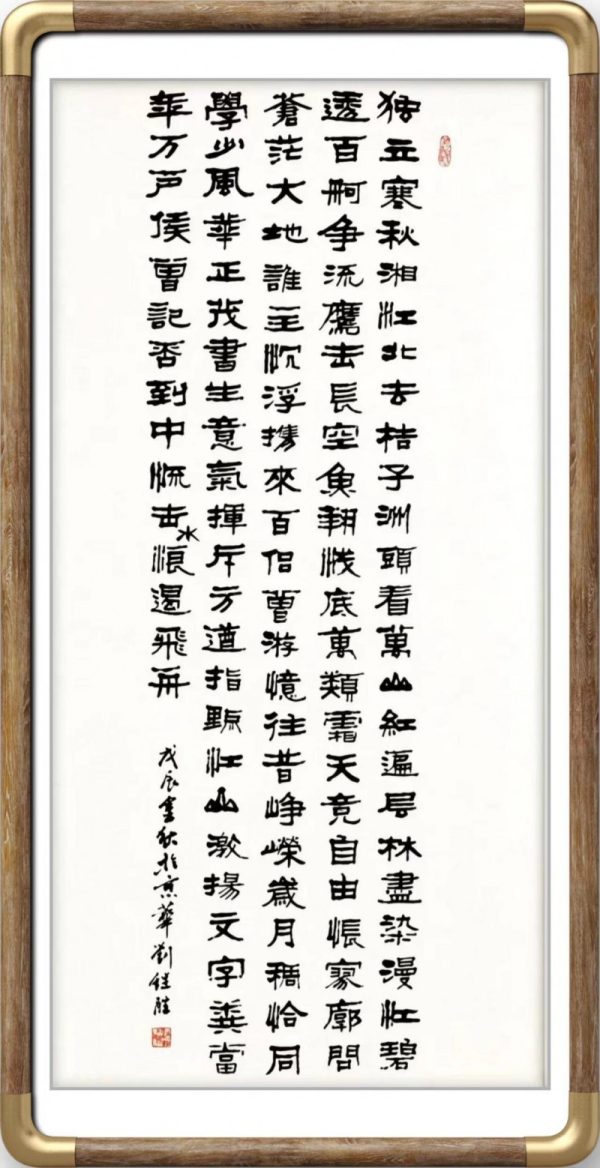 独立寒秋湘江北去桔子洲頭看萬山紅遍层林盡染漫江碧
透百舸争流鷹击長空魚翔浅底萬類霜天竞自由悵寥廓問
蒼茫大地誰主沉浮携來百侣曾游憶往昔峥嵘歲月稠恰同
學少風華正茂書生意氣揮斥方遒指點江山激揚文字粪當
年万户侯曾記否到中流击水浪遏飛舟
戊辰金秋於京華劉继胜